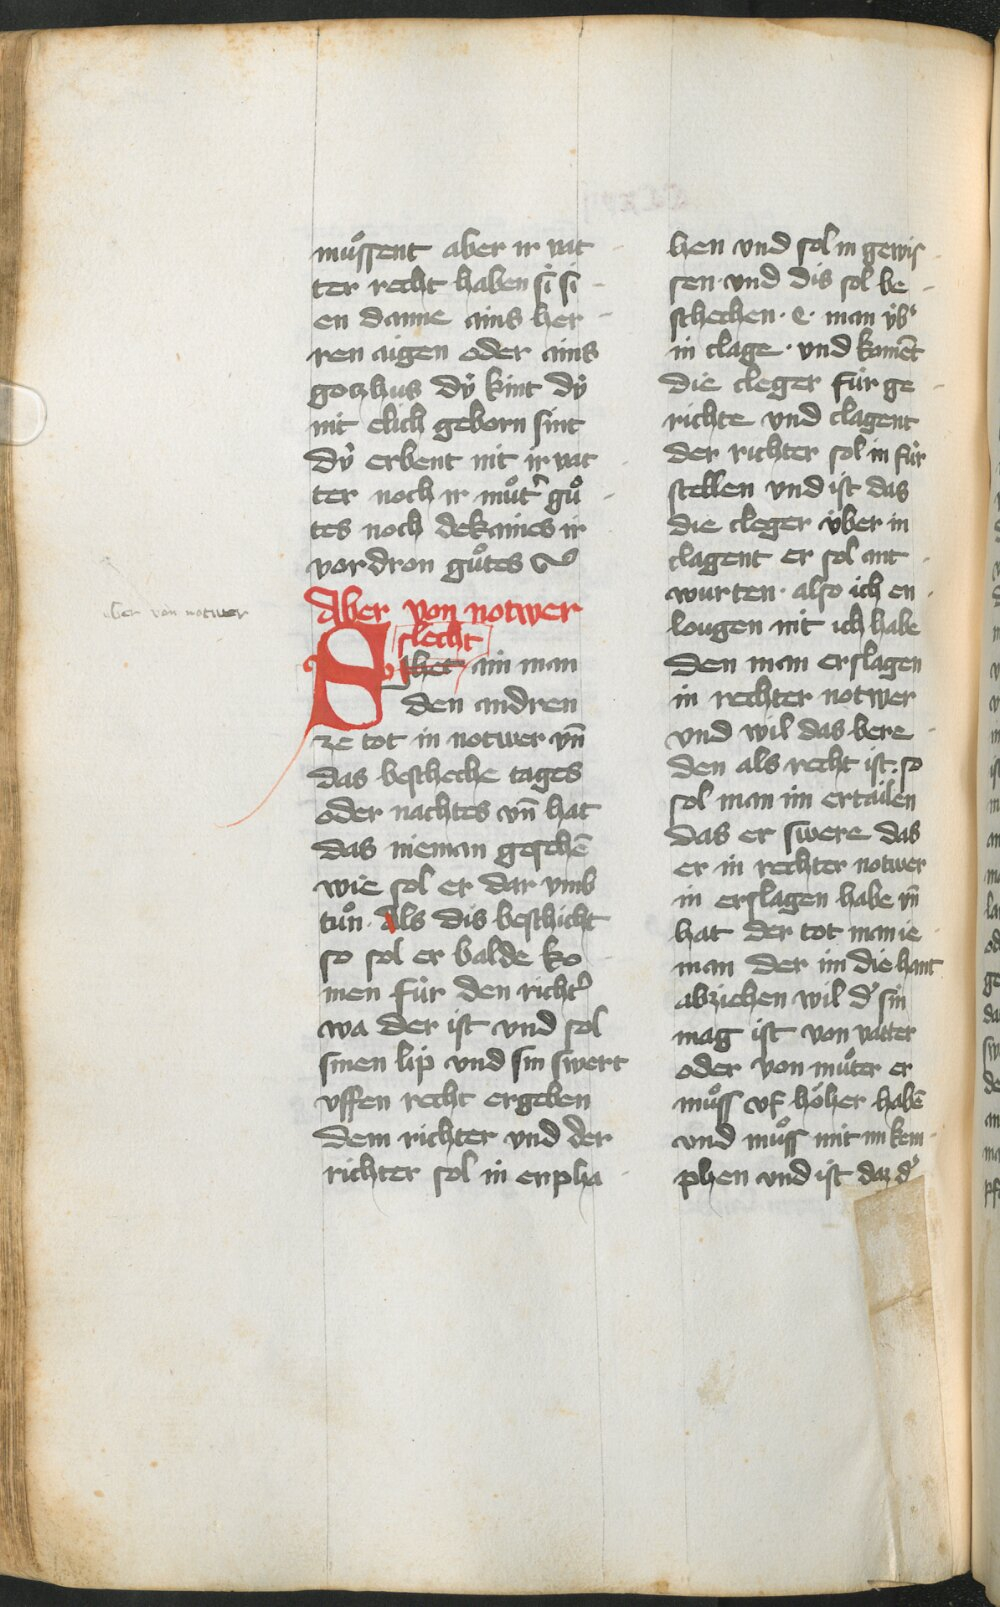 muͦssent aber ir vat
ter recht haben si si
en danne ains her
ren aigen oder ains
gotzhus dÿ kint dÿ
nit elich geborn sint
dÿ erbent nit ir vat
ter noch ir muͦtr̄ guͦ
tes noch dekaines ir
vordron guͦtes
Aber von notwer
aber von notwer
slecht
S ain man
den andren
ze tot in notwer vn̄
das bescheche tages
oder nachtes vn̄ hat
das nieman gesechē
wie sol er dar vmb
tuͦn· Als dis beschicht
so sol er balde ko
men fúr den richtˀ
wa der ist vnd sol
sinen lip vnd sin swert
vffen recht ergeben
dem richter vnd der
richter sol in enpha
hen vnd sol in gewis
sen vnd dis sol be
schechen· e· man v́bˀ
in clage· vnd komēt
die cleger fúr ge
richte vnd clagent
der richter sol in fúr
stellen vnd ist das
die cleger v́ber in
clagent er sol ant
wurten· also ich en
lougen nit ich habe
den man erslagen
in rechter notwer
vnd wil das bere
den als recht ist· so
sol man im ertailen
das er swere das
er in rechter notwer
in erslagen habe vn̄
hat der tot man ie
man der im die hant
abziehen wil dˀ sin
mag ist von vatter
oder von muͦter er
muͦss vf hoͤher habē
vnd muͦss mit im kem
phen vnd ist daz dˀ